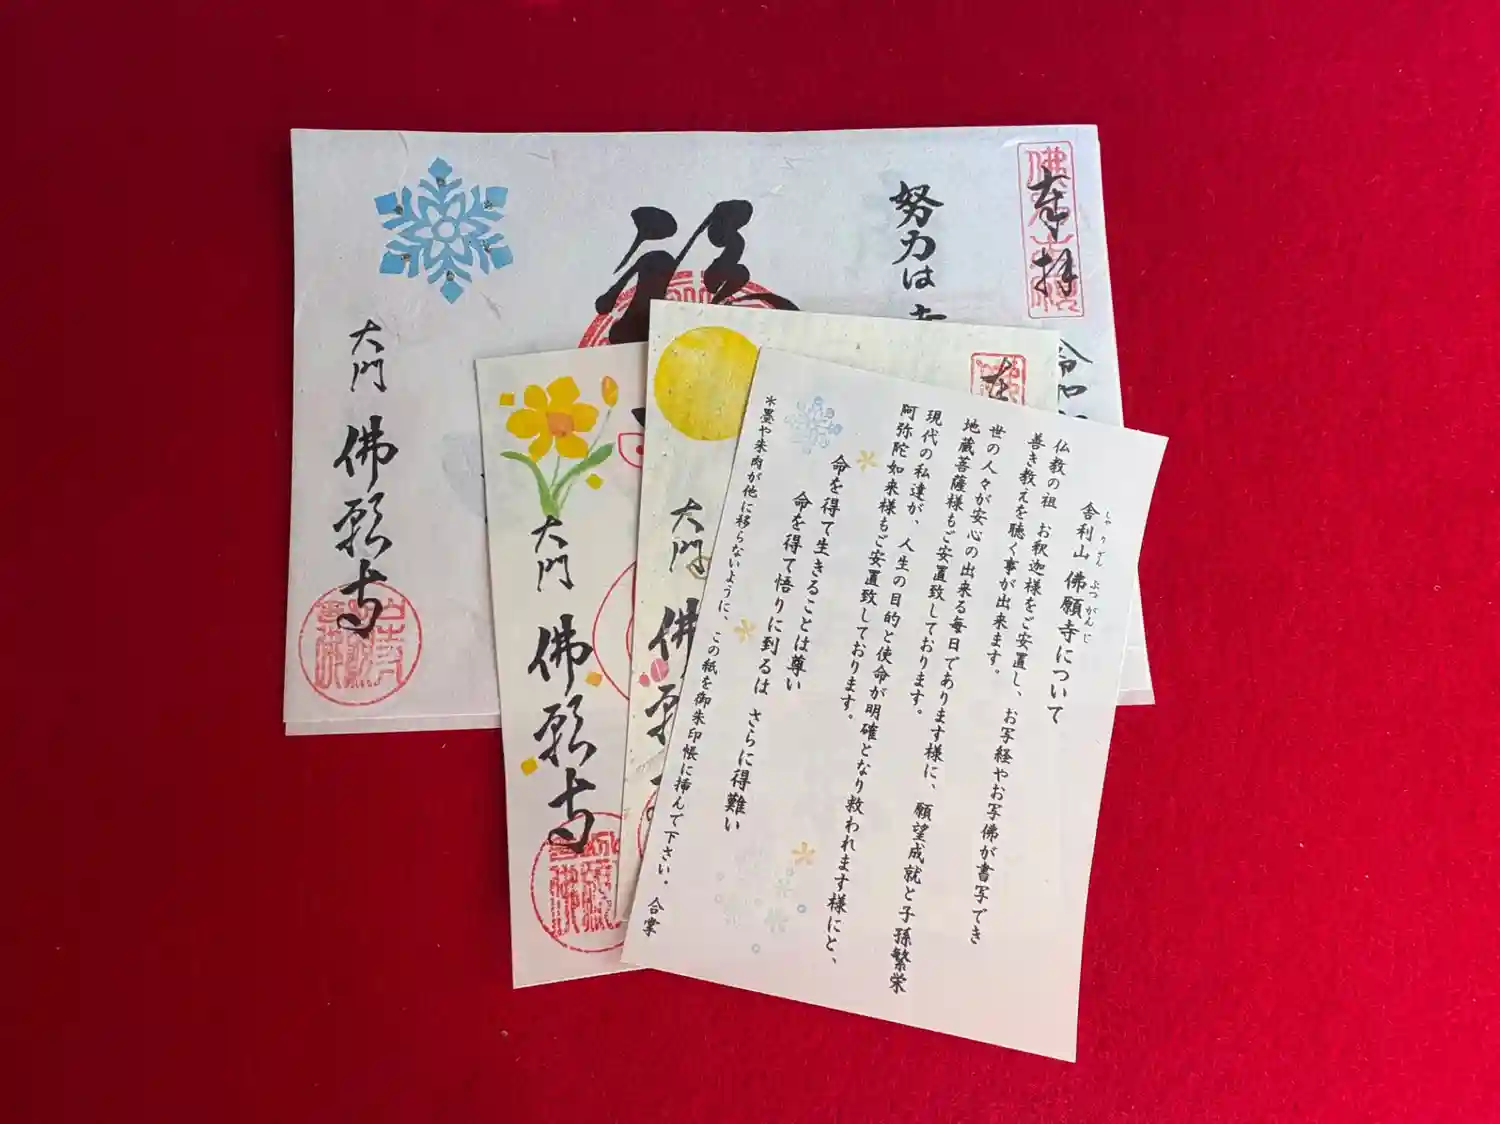 奉拝
令和
努力は
福
大門
佛願寺
大門
佛願寺
大門
佛願
舎利山 佛願寺について
しゃりざん ぶつがんじ
仏教の祖 お釈迦様をご安置し、お写経やお写佛が書写でき
善き教えを聴く事が出来ます。
世の人々が安心の出来る毎日であります様に、願望成就と子孫繁栄
地蔵菩薩様もご安置致しております。
現代の私達が、人生の目的と使命が明確となり救われます様にと、
阿弥陀如来様もご安置致しております。
命を得て生きることは尊い
命を得て悟りに到るは さらに得難い
*墨や朱肉が他に移らないように、この紙を御朱印帳に挿んで下さい。合掌